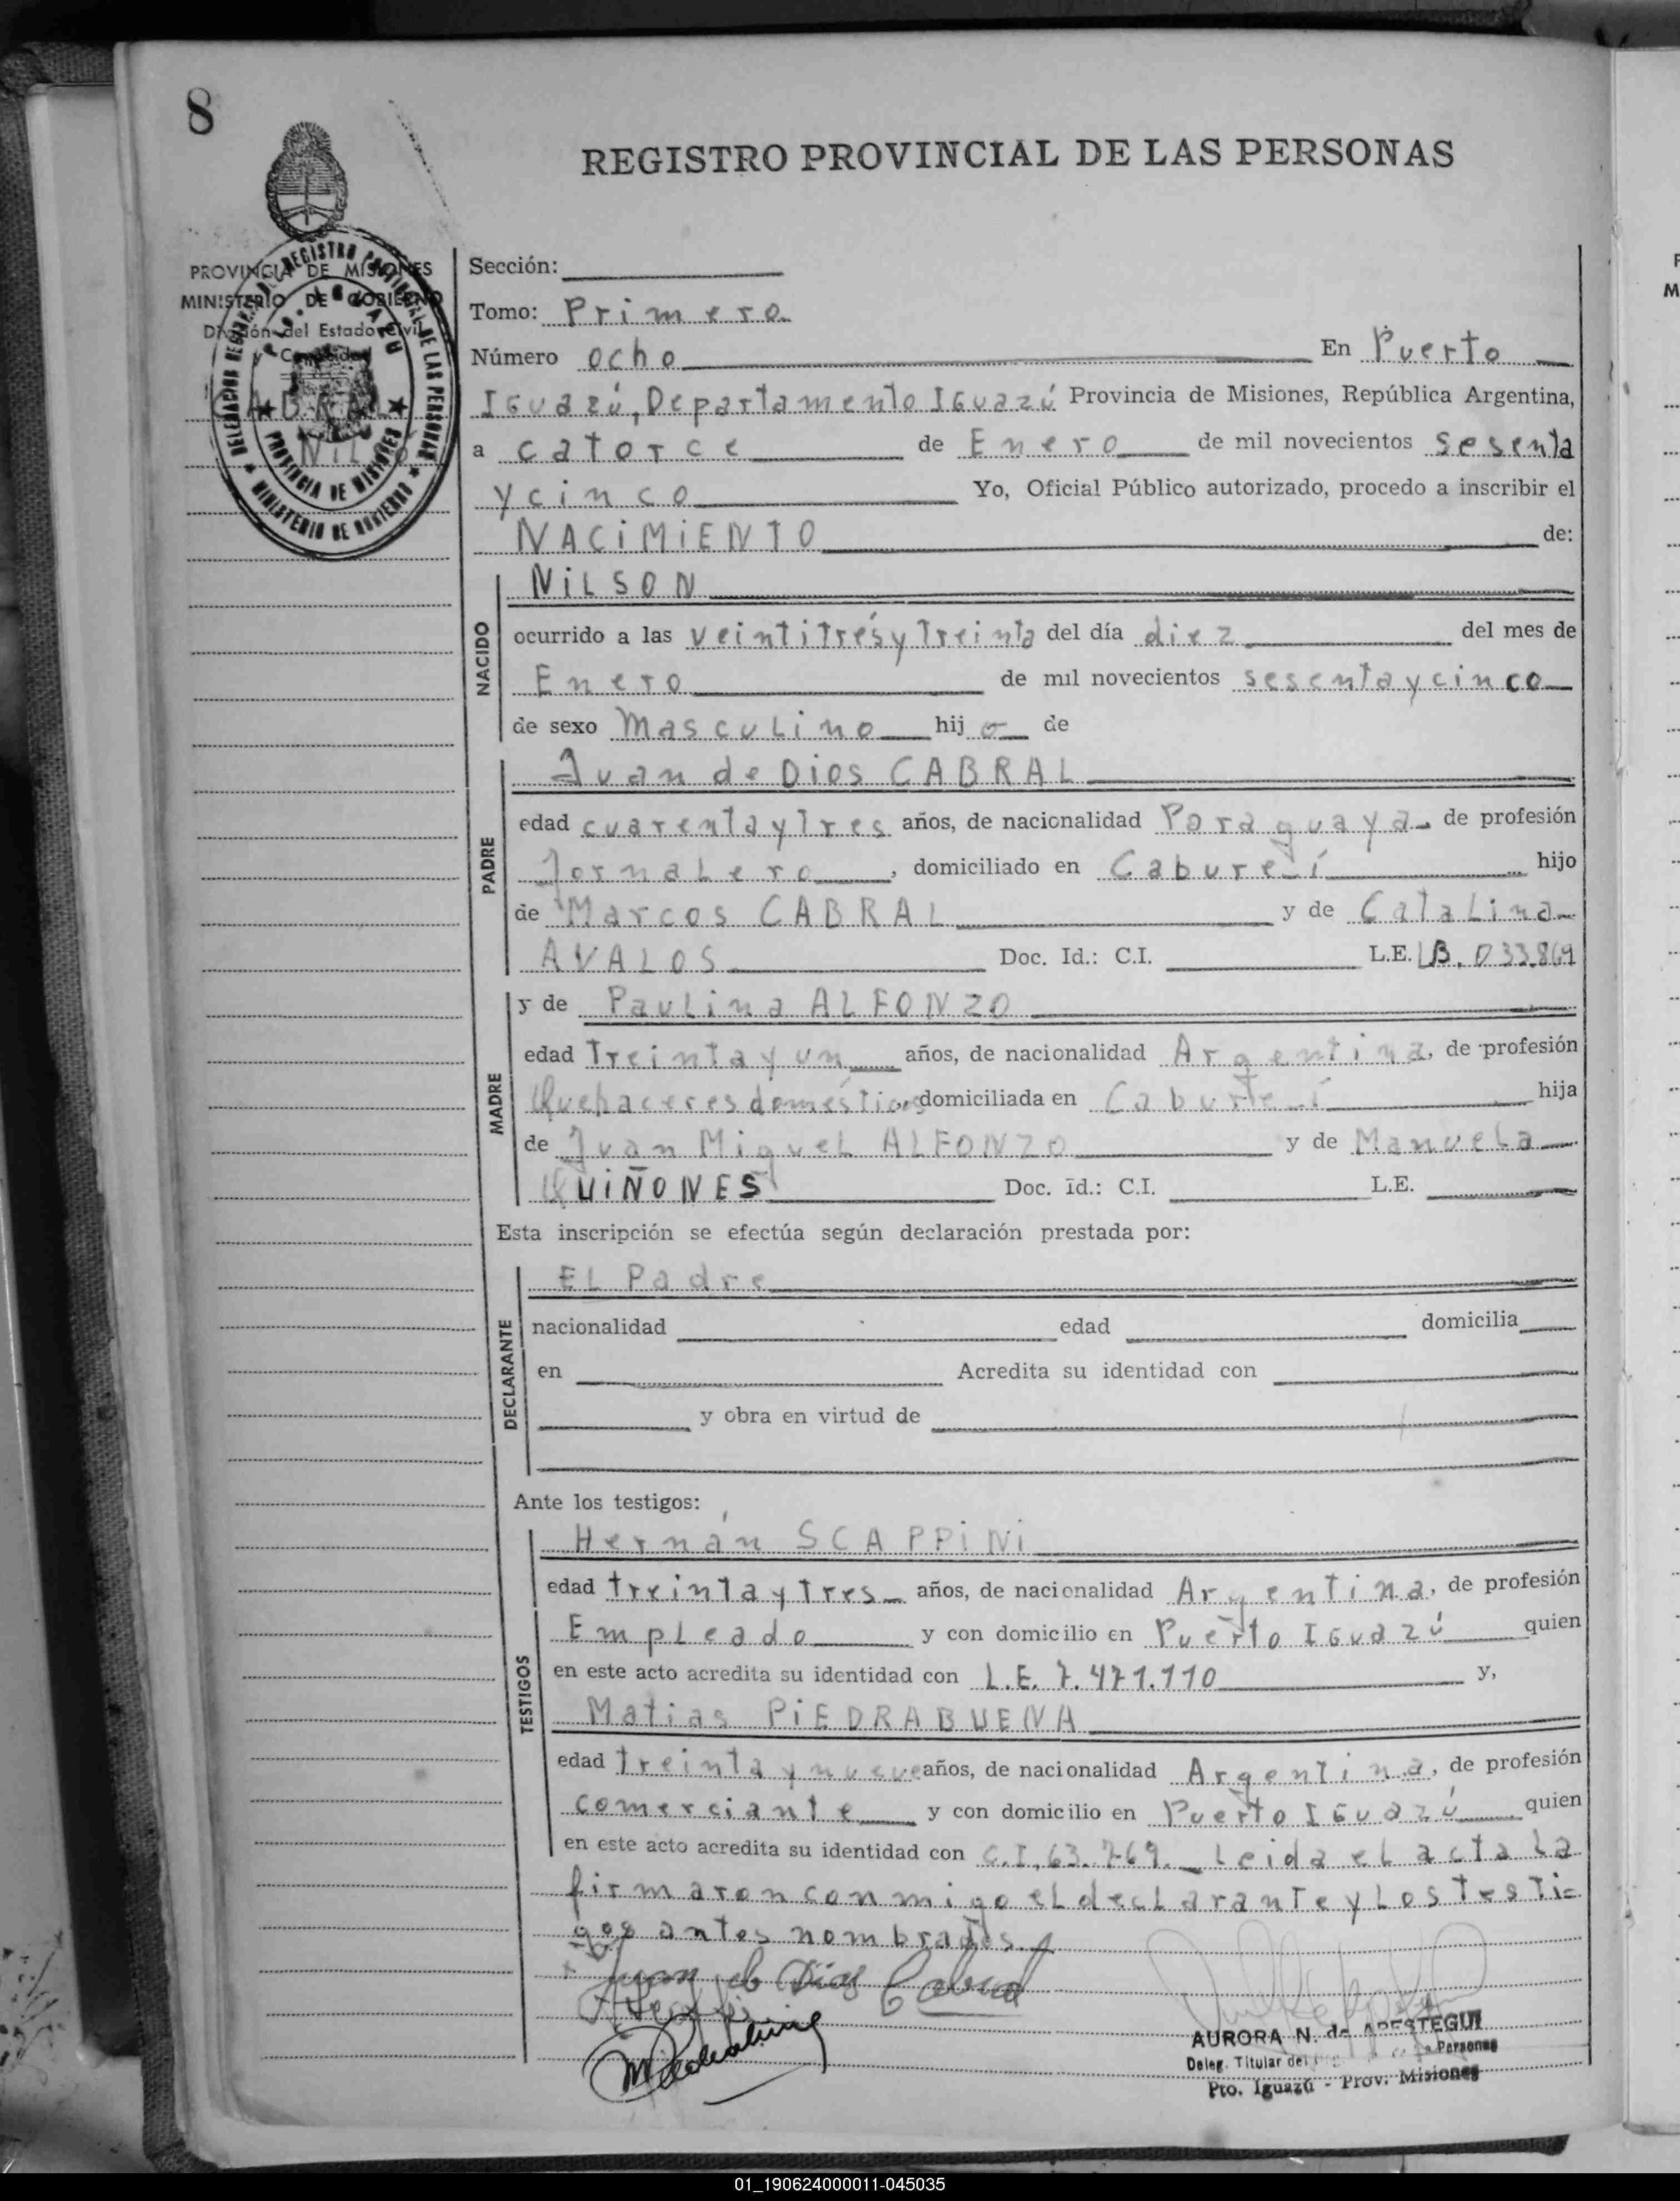 8
REGISTRO PROVINCIAL DE LAS PERSONAS
PROVINCIA DE MISIONES
MINISTERIO DE GOBIERNO
División del Estado Civil
y Capacidad
CABRAL
Nilson
DELEGACION REGISTRO PROVINCIAL DE LAS PERSONAS
PROVINCIA DE MISIONES
MINISTERIO DE GOBIERNO
Sección:
Tomo: Primero
Número ocho En Puerto
Iguazú, Departamento Iguazú Provincia de Misiones, República Argentina,
a catorce de Enero de mil novecientos sesenta
y cinco Yo, Oficial Público autorizado, procedo a inscribir el
NACIMIENTO de:
NACIDO
NILSON
ocurrido a las veintitrés y treinta del día diez del mes de
Enero de mil novecientos sesenta y cinco
de sexo Masculino hijo de
PADRE
Juan de Dios CABRAL
edad cuarenta y tres años, de nacionalidad Paraguaya de profesión
Jornalero, domiciliado en Cabureí hijo
de Marcos CABRAL y de Catalina
AVALOS Doc. Id.: C.I. L.E. B. 033.869
MADRE
y de Paulina ALFONZO
edad Treinta y un años, de nacionalidad Argentina, de profesión
Quehaceres domésticos, domiciliada en Cabureí hija
de Juan Miguel ALFONZO y de Manuela
QUIÑONES Doc. Id.: C.I. L.E.
Esta inscripción se efectúa según declaración prestada por:
DECLARANTE
El Padre
nacionalidad edad domicilia
en Acredita su identidad con
y obra en virtud de
Ante los testigos:
TESTIGOS
Hernán SCAPPINI
edad treinta y tres años, de nacionalidad Argentina, de profesión
Empleado y con domicilio en Puerto Iguazú quien
en este acto acredita su identidad con L.E. 7.471.110 y,
Matias PIEDRABUENA
edad treinta y nueve años, de nacionalidad Argentina, de profesión
comerciante y con domicilio en Puerto Iguazú quien
en este acto acredita su identidad con C.I. 63.769. Leida el acta la
firmaron conmigo el declarante y los testi=
gos antes nombrados.
Juan de Dios Cabral
AURORA N. de ARESTEGUI
Deleg. Titular del Personas
Pto. Iguazú - Prov. Misiones
01_190624000011-045035